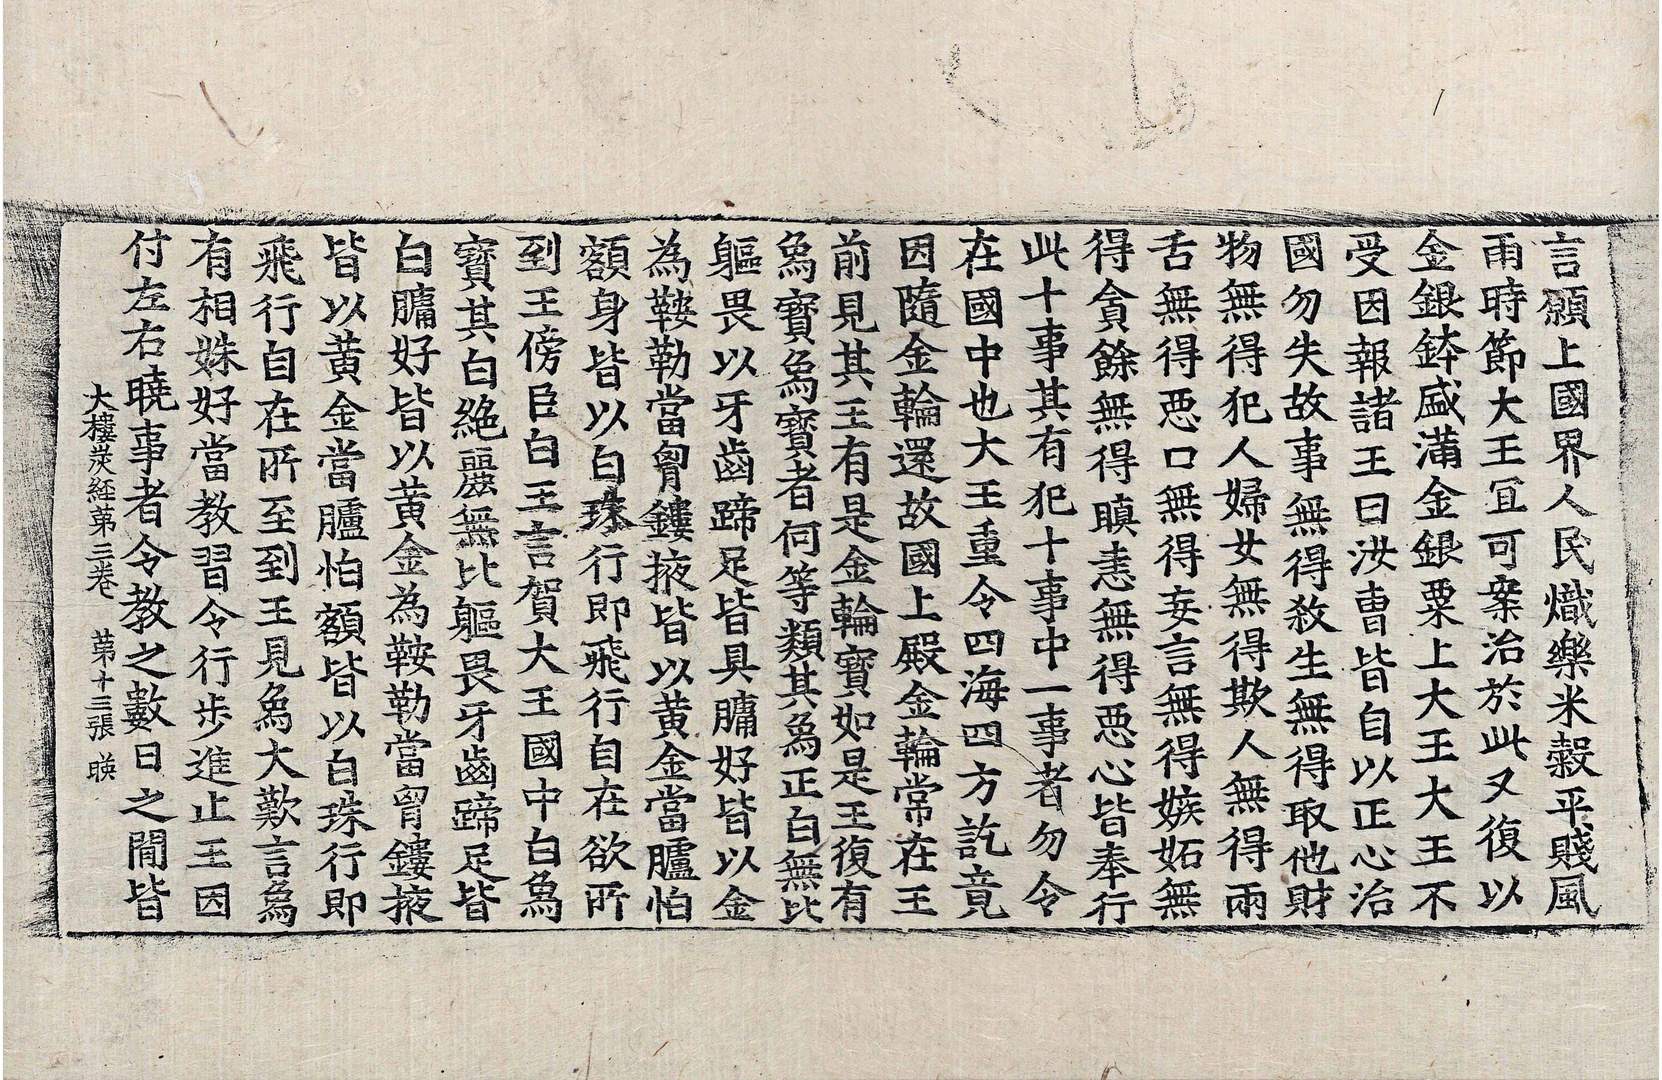 言願上國界人民熾樂米穀平賤風
雨時節大王冝可案治於此又復以
金銀鉢盛滿金銀粟上大王大王不
受因報諸王曰汝曹皆自以正心治
國勿失故事無得殺生無得取他財
物無得犯人婦女無得欺人無得兩
舌無得惡口無得妄言無得嫉妬無
得貪餘無得瞋恚無得惡心皆奉行
此十事其有犯十事中一事者勿令
在國中也大王重令四海四方訖竟
因隨金輪還故國上殿金輪常在王
前見其王有是金輪寶如是王復有
爲寶爲寶者何等類其爲正白無比
軀畏以牙齒蹄足皆具膅好皆以金
為鞍勒當胷鏤掖皆以黃金當臚怕
額身皆以白珠行即飛行自在欲所
到王傍臣白王言賀大王國中白爲
寶其白絶麗無比軀畏牙齒蹄足皆
白膅好皆以黃金為鞍勒當胷鏤掖
皆以黃金當臚怕額皆以白珠行即
飛行自在所至到王見爲大歎言爲
有相姝好當教習令行步進止王因
付左右曉事者令教之數日之閒皆
大樓炭経第三卷 第十三張 暎